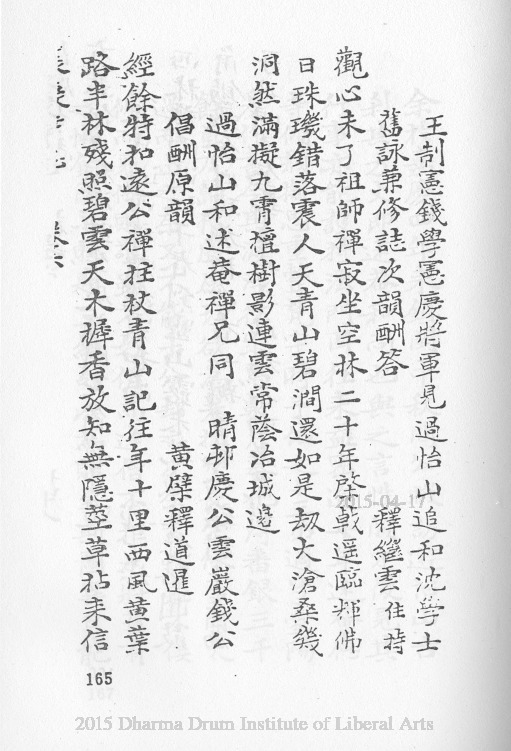 王制憲錢學憲慶將軍見過怡山追和沈學士
舊詠兼修誌次韻酬答 釋繼雲住持
觀心未了祖師禪寂坐空林二十年棨戟遥臨輝佛
日珠璣錯落震人天青山碧澗還如是劫火滄桑幾
洞然滿擬九霄檀樹影連雲常蔭冶城邊
過怡山和述菴禪兄同 晴邨慶公雲巖錢公
倡酬原韻 黃檗釋道暹
經餘特扣遠公禪拄杖青山記往年十里西風黃葉
路半林殘照碧雲天木樨香放知無隱莖草拈來信
卷六
165
2015-04-17
2015 Dharma Drum Institute of Liberal Arts